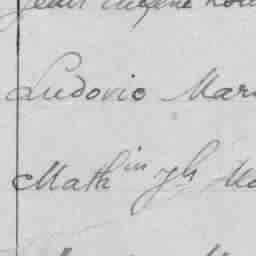 Jean Eugène
Ludovic Mar
Math in Jh